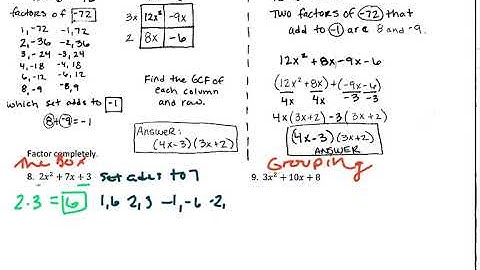 factors of -72
1, -72 -1, 72
2, -36 -2, 36
3, -24 -3, 24
4, -18 -4, 18
6, -12 -6, 12
8, -9 -8, 9
which set adds to -1
8 + -9 = -1
3x 12x² -9x
2 8x -6
Find the GCF of
each column
and row.
ANSWER:
(4x-3)(3x+2)
TWO factors of -72 that
add to -1 are 8 and -9.
12x² + 8x - 9x - 6
(12x² + 8x) + (-9x - 6)
4x 4x -3 -3
4x(3x+2) - 3(3x+2)
(4x-3)(3x+2)
ANSWER
Factor completely.
the Box
8. 2x² + 7x + 3 set adds to 7
2·3 = 6 1,6 2,3 -1,-6 -2,
Grouping
9. 3x² + 10x + 8